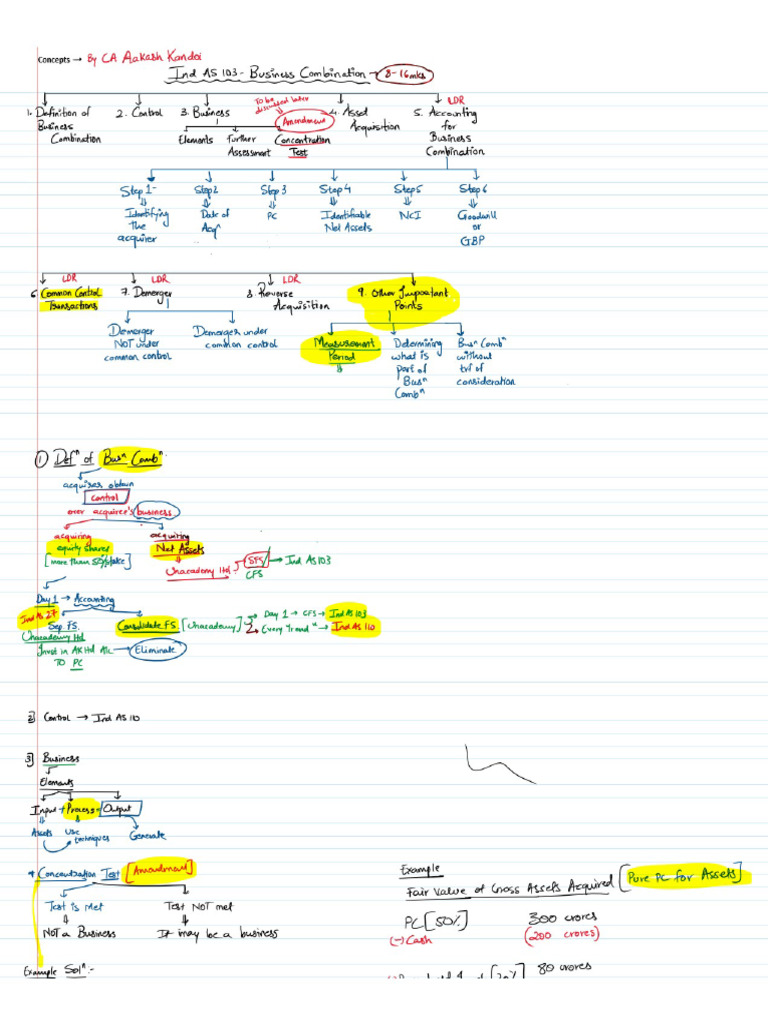 Concepts → By CA Aakash Kandoi
Ind AS 103 - Business Combination → 8-16 mks
1. Definition of Business Combination
2. Control
3. Business
Elements
Further Assessment
Concentration Test
To be discussed later
Amendment
4. Asset Acquisition
LDR
5. Accounting for Business Combination
Step 1 - Identifying the acquirer
Step 2 Date of Acqⁿ
Step 3 PC
Step 4 Identifiable Net Assets
Step 5 NCI
Step 6 Goodwill or GBP
LDR
6. Common Control Transactions
LDR
7. Demerger
Demerger NOT under common control
Demerger under common control
LDR
8. Reverse Acquisition
9. Other Important Points
Measurement Period
Determining what is part of Busⁿ Combⁿ
Busⁿ Combⁿ without trf of consideration
① Defⁿ of Busⁿ Combⁿ:
acquirer obtain
control
over acquiree's business
acquiring equity shares
[more than 50% stake]
acquiring Net Assets
Unacademy ltd.
SFS → Ind AS 103
CFS
Day 1 → Accounting
Ind AS 27
Sep. FS.
Unacademy ltd
Invst in AK ltd A/c → Eliminate
TO PC
Consolidate FS. [Unacademy]
Day 1 → CFS → Ind AS 103
Every Transⁿ → Ind AS 110
2] Control → Ind AS 110
3] Business
Elements
Input + Process = Output
Assets
use techniques
Generate
* Concentration Test [Amendment]
Test is Met
Not a Business
Test NOT met
It may be a business
Example Solⁿ:-
Example
Fair Value of Gross Assets Acquired [Pure PC for Assets]
PC [50%] 300 crores
(-) Cash (200 crores)
80 crores